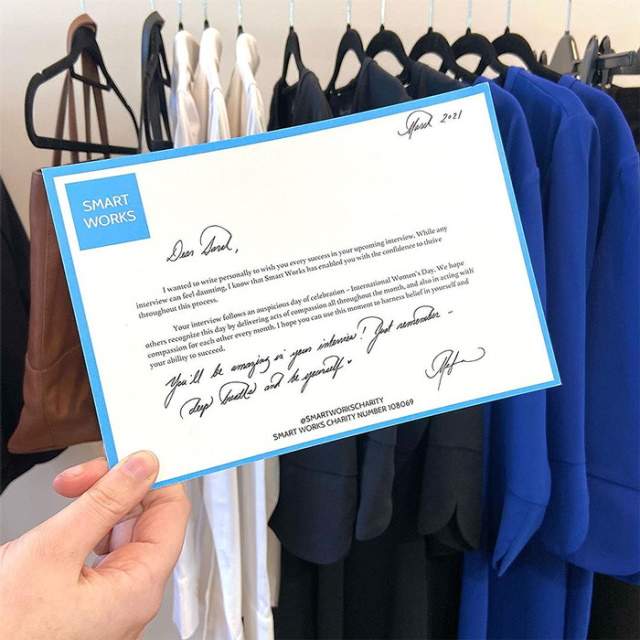 March 2021
SMART
WORKS
Dear Sarah,
I wanted to write personally to wish you every success in your upcoming interview. While any
interview can feel daunting, I know that Smart Works has enabled you with the confidence to thrive
throughout this process.
Your interview follows an auspicious day of celebration – International Woman's Day. We hope
others recognise this day by delivering acts of compassion all throughout the month, and also in acting with
compassion for each other every month. I hope you can use this moment to harness belief in yourself and
your ability to succeed.
You'll be amazing in your interview! Just remember –
deep breaths and be yourself
@SMARTWORKSCHARITY
SMART WORKS CHARITY NUMBER 108069